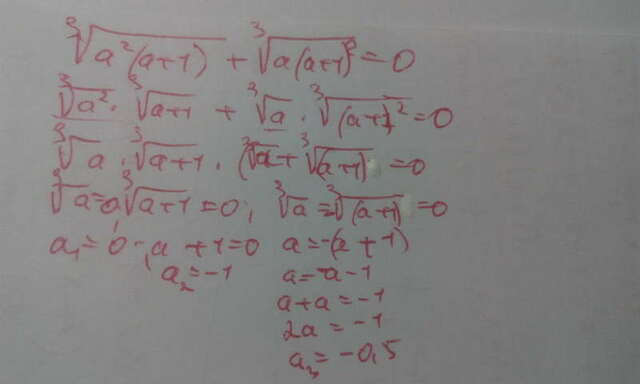 ∛a²(a+1) + ∛a(a+1)² = 0
∛a² · ∛a+1 + ∛a · ∛(a+1)² = 0
∛a · ∛a+1 · (∛a + ∛(a+1) = 0
∛a = 0, ∛a+1 = 0; ∛a = ∛(a+1) = 0
a₁ = 0 ; a + 1 = 0 a = -(a + 1)
a₂ = -1 a = -a - 1
a + a = -1
2a = -1
a₃ = -0,5